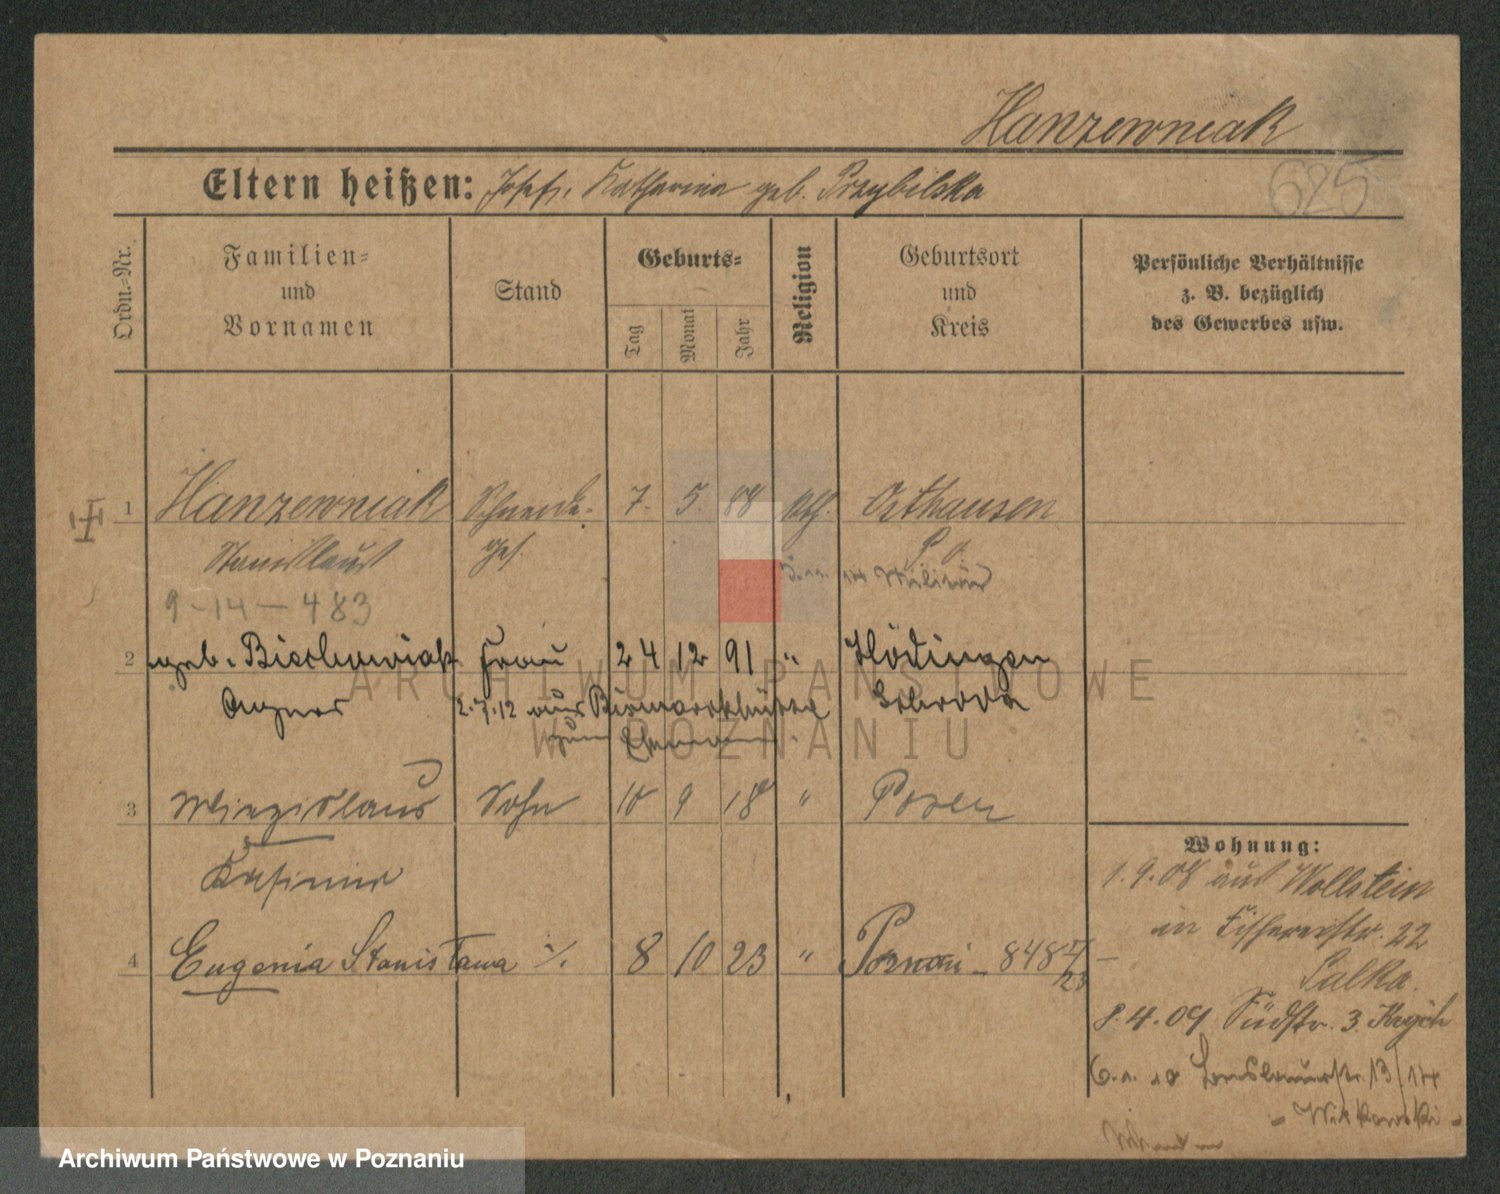 Hanzewniak
625
Eltern heißen: Josef, Katharina geb. Przybilska
Ordn.-Nr.
Familien-
und
Vornamen
Stand
Geburts-
Tag
Monat
Jahr
Religion
Geburtsort
und
Kreis
Persönliche Verhältnisse
z. B. bezüglich
des Gewerbes usw.
1 Hanzewniak Schneider- 7. 5. 88 kth. Orthausen
Stanislaus ges.
14 Militär
9-14-483
2 geb. Frau 24 12 91 " Hödingen
Agnes 2.7.12 aus Bismarckhütte Schroda
zum Ehemann.
3 Miezislaus Sohn 10 9 18 " Posen
Kasimir
4 Eugenia Stanisława 8 10 23 " Poznań - 848
Wohnung:
1.9.08 aus Wollstein
in Fischereistr. 22
Salka.
8.4.09 Südstr. 3.
13/14
- Witkowski -
ARCHIWUM PAŃSTWOWE
W POZNANIU
Archiwum Państwowe w Poznaniu